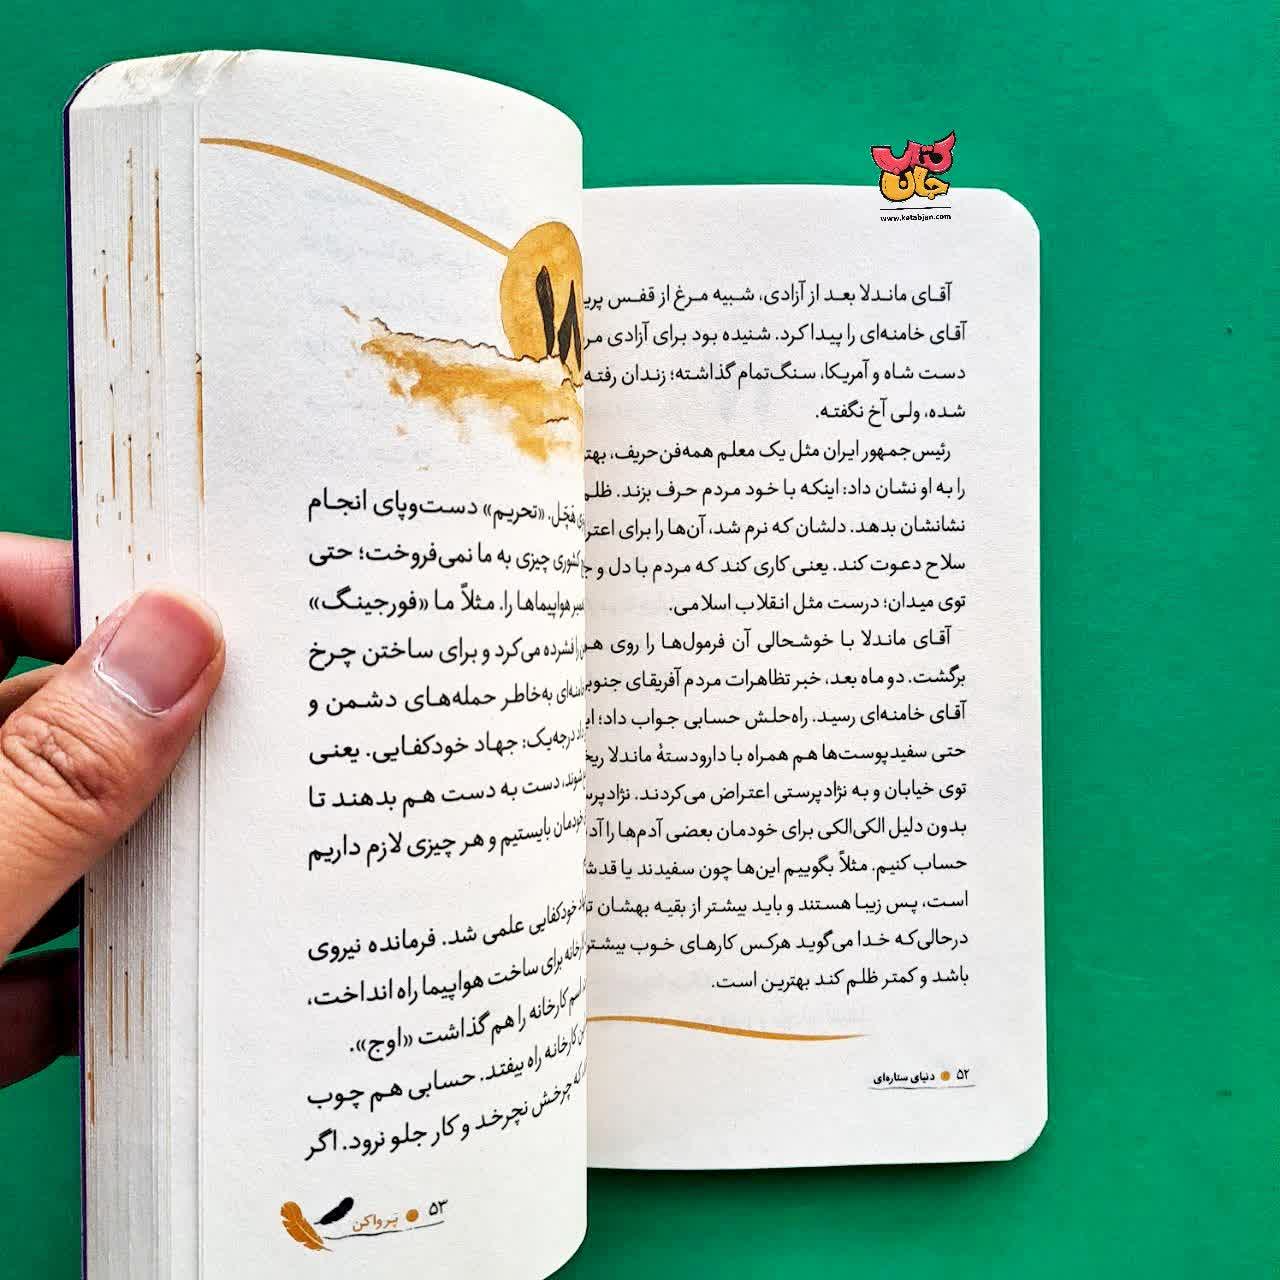 کتاب جان
www.ketabjan.com
آقای ماندلا بعد از آزادی، شبیه مرغ از قفس
آقای خامنه‌ای را پیدا کرد. شنیده بود برای آزادی
دست شاه و آمریکا، سنگ‌تمام گذاشته؛ زندان رفته
شده، ولی آخ نگفته.
رئیس‌جمهور ایران مثل یک معلم همه‌فن‌حریف،
را به او نشان داد: اینکه با خود مردم حرف بزند.
نشانشان بدهد. دلشان که نرم شد، آن‌ها را برای
سلاح دعوت کند. یعنی کاری کند که مردم با دل و
توی میدان؛ درست مثل انقلاب اسلامی.
آقای ماندلا با خوشحالی آن فرمول‌ها را روی
برگشت. دو ماه بعد، خبر تظاهرات مردم آفریقای
آقای خامنه‌ای رسید. راه‌حلش حسابی جواب داد؛
حتی سفیدپوست‌ها هم همراه با دارودستهٔ ماندلا
توی خیابان و به نژادپرستی اعتراض می‌کردند.
بدون دلیل الکی‌الکی برای خودمان بعضی آدم‌ها را
حساب کنیم. مثلاً بگوییم این‌ها چون سفیدند یا
است، پس زیبا هستند و باید بیشتر از بقیه بهشان
درحالی‌که خدا می‌گوید هرکس کارهای خوب بیشتر
باشد و کمتر ظلم کند بهترین است.
۵۲ دنیای ستاره‌ای
۱۸
هَچَل. «تحریم» دست‌وپای انجام
کشوری چیزی به ما نمی‌فروخت؛ حتی
هواپیماها را. مثلاً ما «فورجینگ»
را فشرده می‌کرد و برای ساختن چرخ
به‌خاطر حمله‌های دشمن و
درجه‌یک: جهاد خودکفایی. یعنی
شوند، دست به دست هم بدهند تا
خودمان بایستیم و هر چیزی لازم داریم
خودکفایی علمی شد. فرمانده نیروی
برای ساخت هواپیما راه انداخت،
اسم کارخانه را هم گذاشت «اوج».
کارخانه راه بیفتد. حسابی هم چوب
که چرخش نچرخد و کار جلو نرود. اگر
۵۳ پَر وا کن